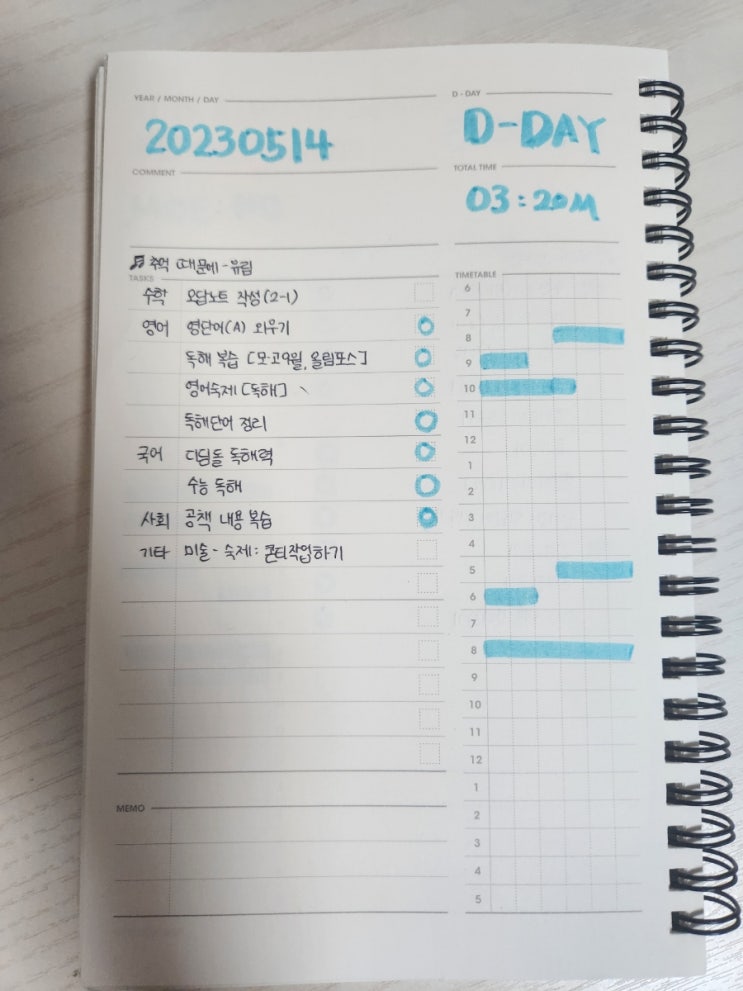 YEAR / MONTH / DAY
20230514
D - DAY
D-DAY
COMMENT
TOTAL TIME
03:20M
♬ 추억 때문에 - 유림
TASKS
수학 오답노트 작성(2-1)
영어 영단어(A) 외우기
독해 복습 [모·고9월, 올림포스]
영어숙제 [독해]
독해단어 정리
국어 디딤돌 독해력
수능 독해
사회 공책 내용 복습
기타 미술 - 숙제: 콘티작업하기
TIMETABLE
6
7
8
9
10
11
12
1
2
3
4
5
6
7
8
9
10
11
12
1
2
3
4
5
MEMO